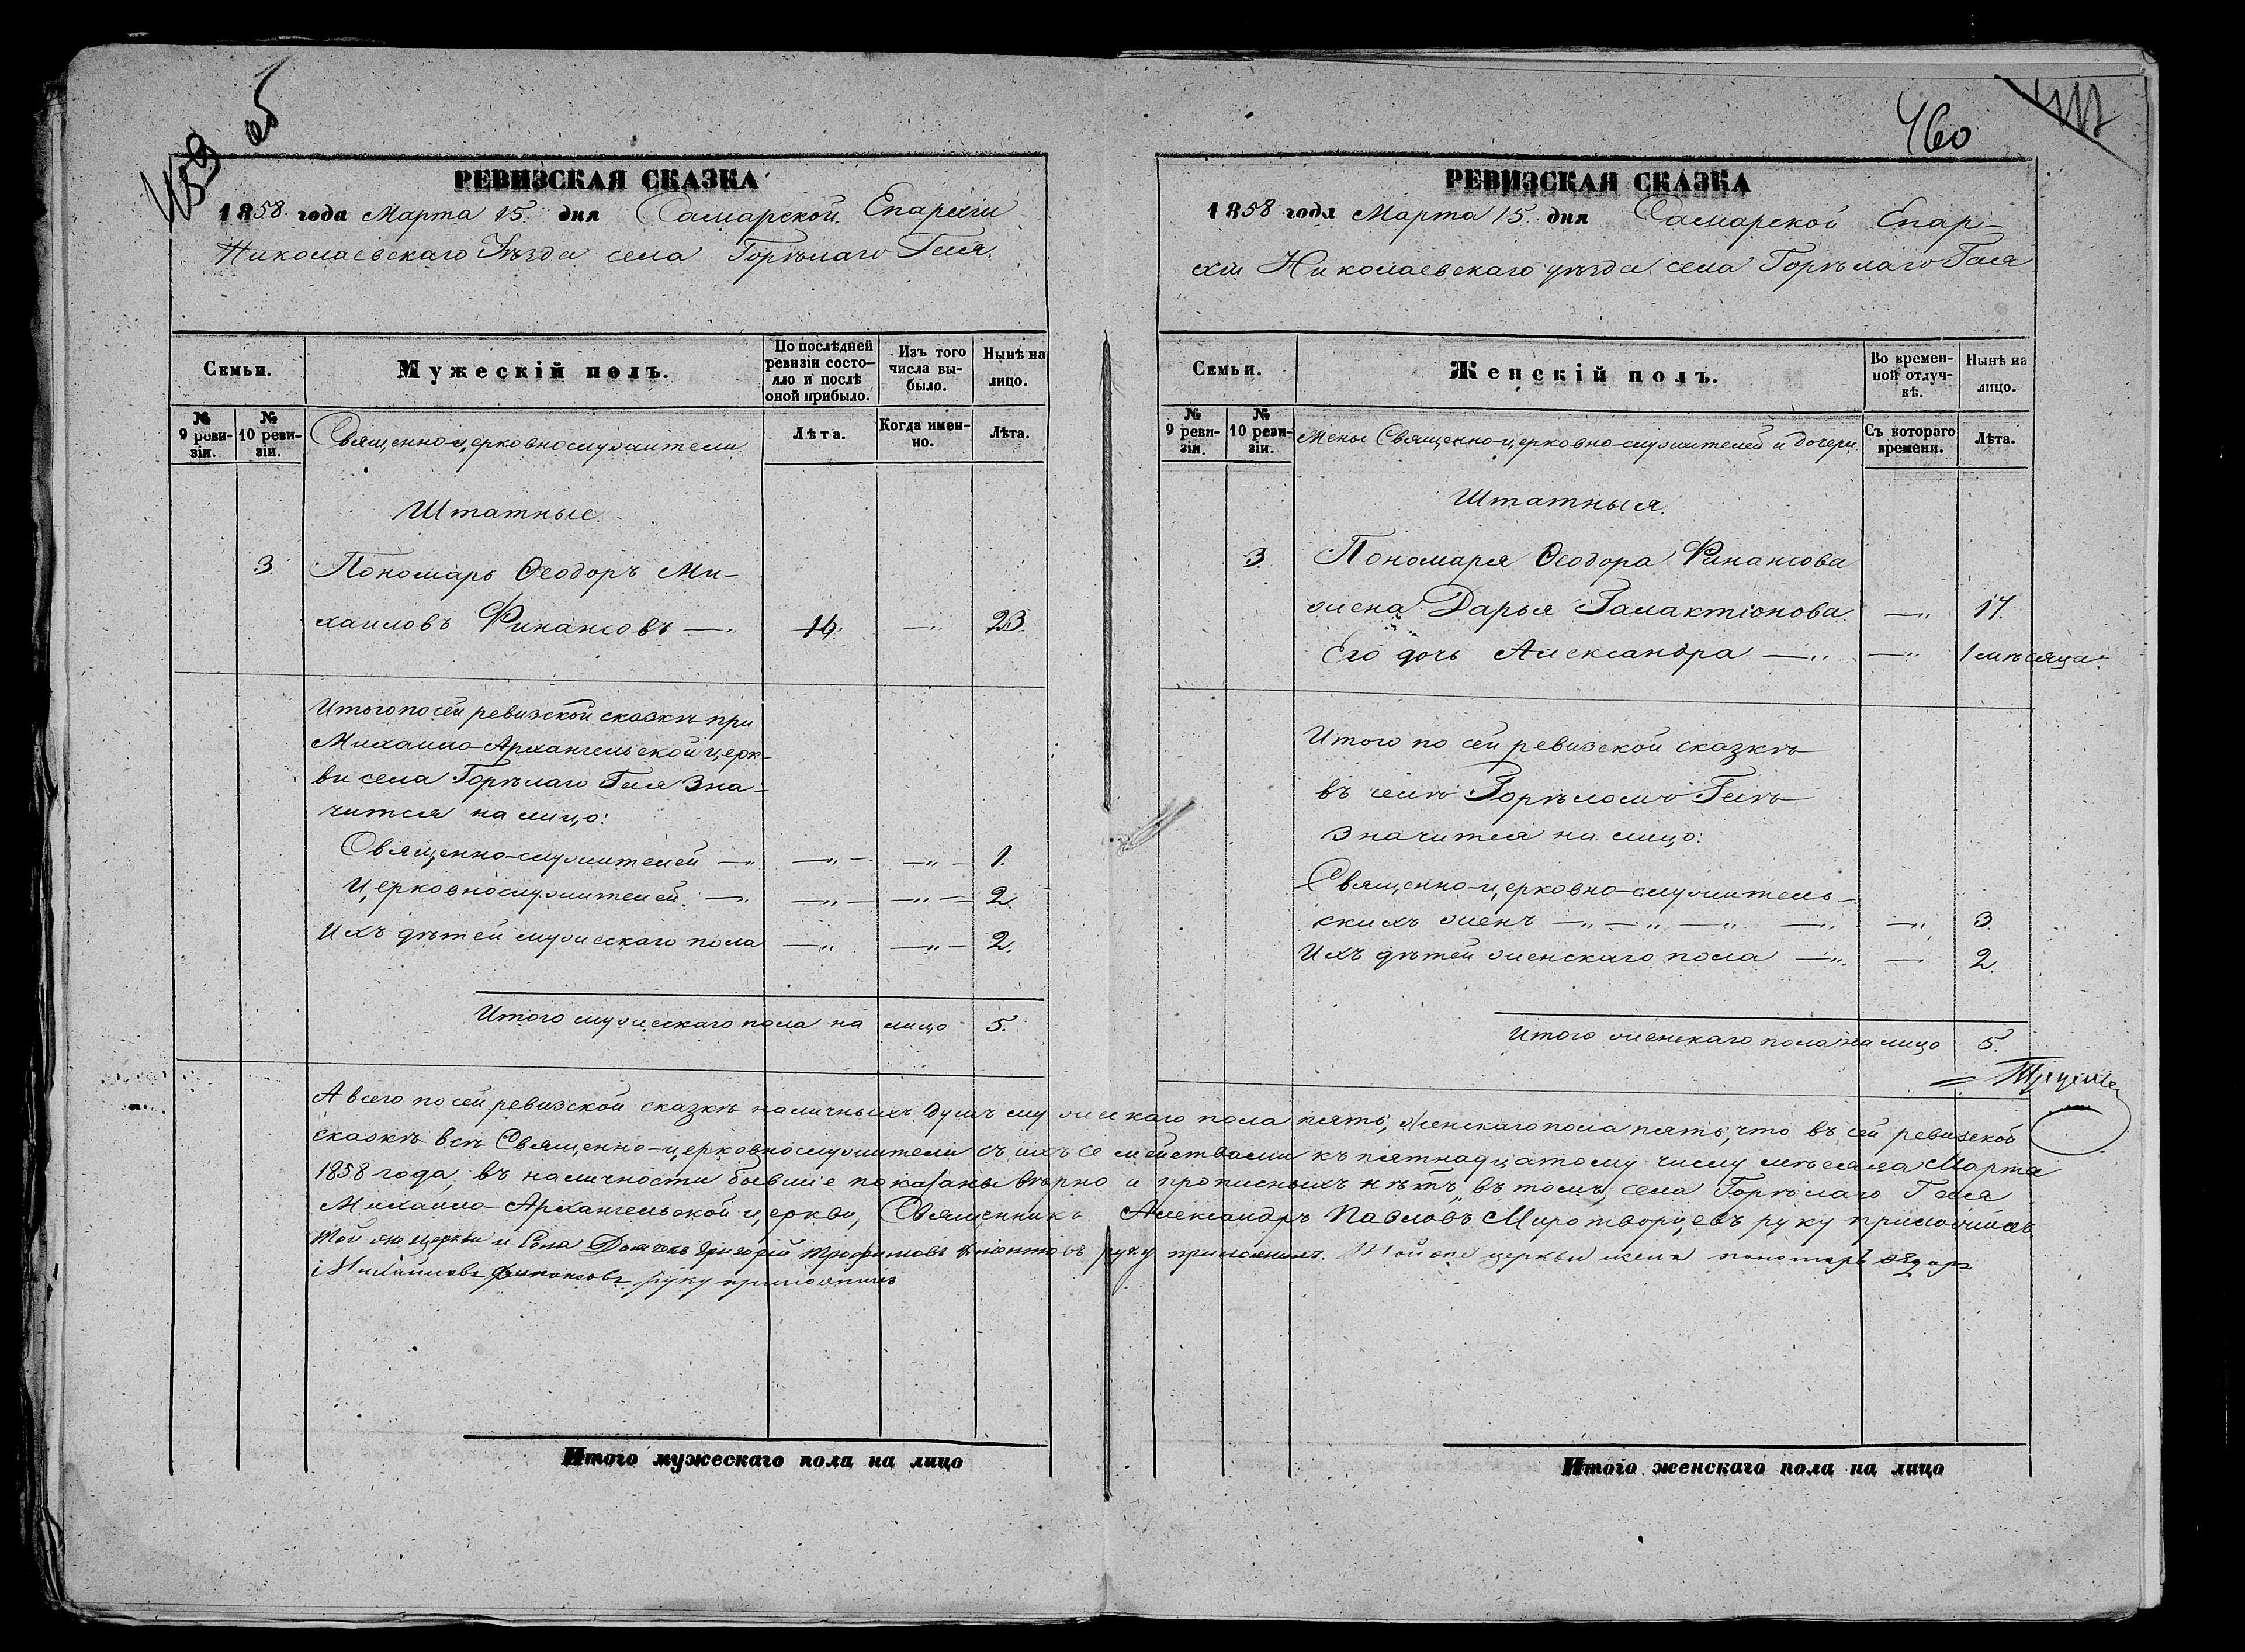 459 об
РЕВИЗСКАЯ СКАЗКА
1858 года Марта 15. дня Самарской Епархіи
Николаевскаго Уѣзда села Горѣлаго Гая.
Семьи.
Мужескій полъ.
По послѣдней ревизіи состояло и послѣ оной прибыло.
Изъ того числа выбыло.
Нынѣ на лицо.
№ 9 ревизіи.
№ 10 ревизіи.
Священно-церковнослужители
Лѣта.
Когда именно.
Лѣта.
Штатные.
3. Пономарь Ѳеодоръ Ми-
хаиловъ Финансовъ — 16. — 23.
Итого по сей ревизской сказкѣ при
Михаило-Архангельской церк-
ви села Горѣлаго Гая зна-
чится на лицо:
Священно-служителей — 1.
Церковнослужителей. — 2.
Ихъ дѣтей мужескаго пола — 2.
Итого мужескаго пола на лицо 5.
460
РЕВИЗСКАЯ СКАЗКА
1858 года Марта 15. дня Самарской Епар-
хіи Николаевскаго уѣзда села Горѣлаго Гая
Семьи.
Женскій полъ.
Во временной отлучкѣ.
Нынѣ на лицо.
№ 9 ревизіи.
№ 10 ревизіи.
Жены Священно-церковно-служителей и дочери.
Съ котораго времени.
Лѣта.
Штатныя.
3. Пономаря Ѳеодора Финансова
жена Дарья Галактіонова — 17.
Его дочь Александра — 1 мѣсяца.
Итого по сей ревизской сказкѣ
въ селѣ Горѣломъ Гаѣ
значится на лицо:
Священно-церковно-служитель-
скихъ женъ — 3.
Ихъ дѣтей женскаго пола — 2.
Итого женскаго пола на лицо 5.
А всего по сей ревизской сказкѣ наличныхъ душъ мужескаго пола пять, женскаго пола пять, что въ сей ревизской
сказкѣ всѣ Священно-церковнослужители съ ихъ семействами къ пятнадцатому числу мѣсяца Марта
1858 года, въ наличности бывшіе показаны вѣрно и прописныхъ нѣтъ, въ томъ, села Горѣлаго Гая
Михаило-Архангельской церкви, Священникъ Александръ Павловъ Миротворцевъ руку приложилъ
Той же церкви и села Дьячекъ Григорій Трофимовъ руку приложилъ. Той же церкви и села пономарь Ѳедоръ
Михайловъ Финансовъ руку приложилъ
Итого мужескаго пола на лицо
Итого женскаго пола на лицо